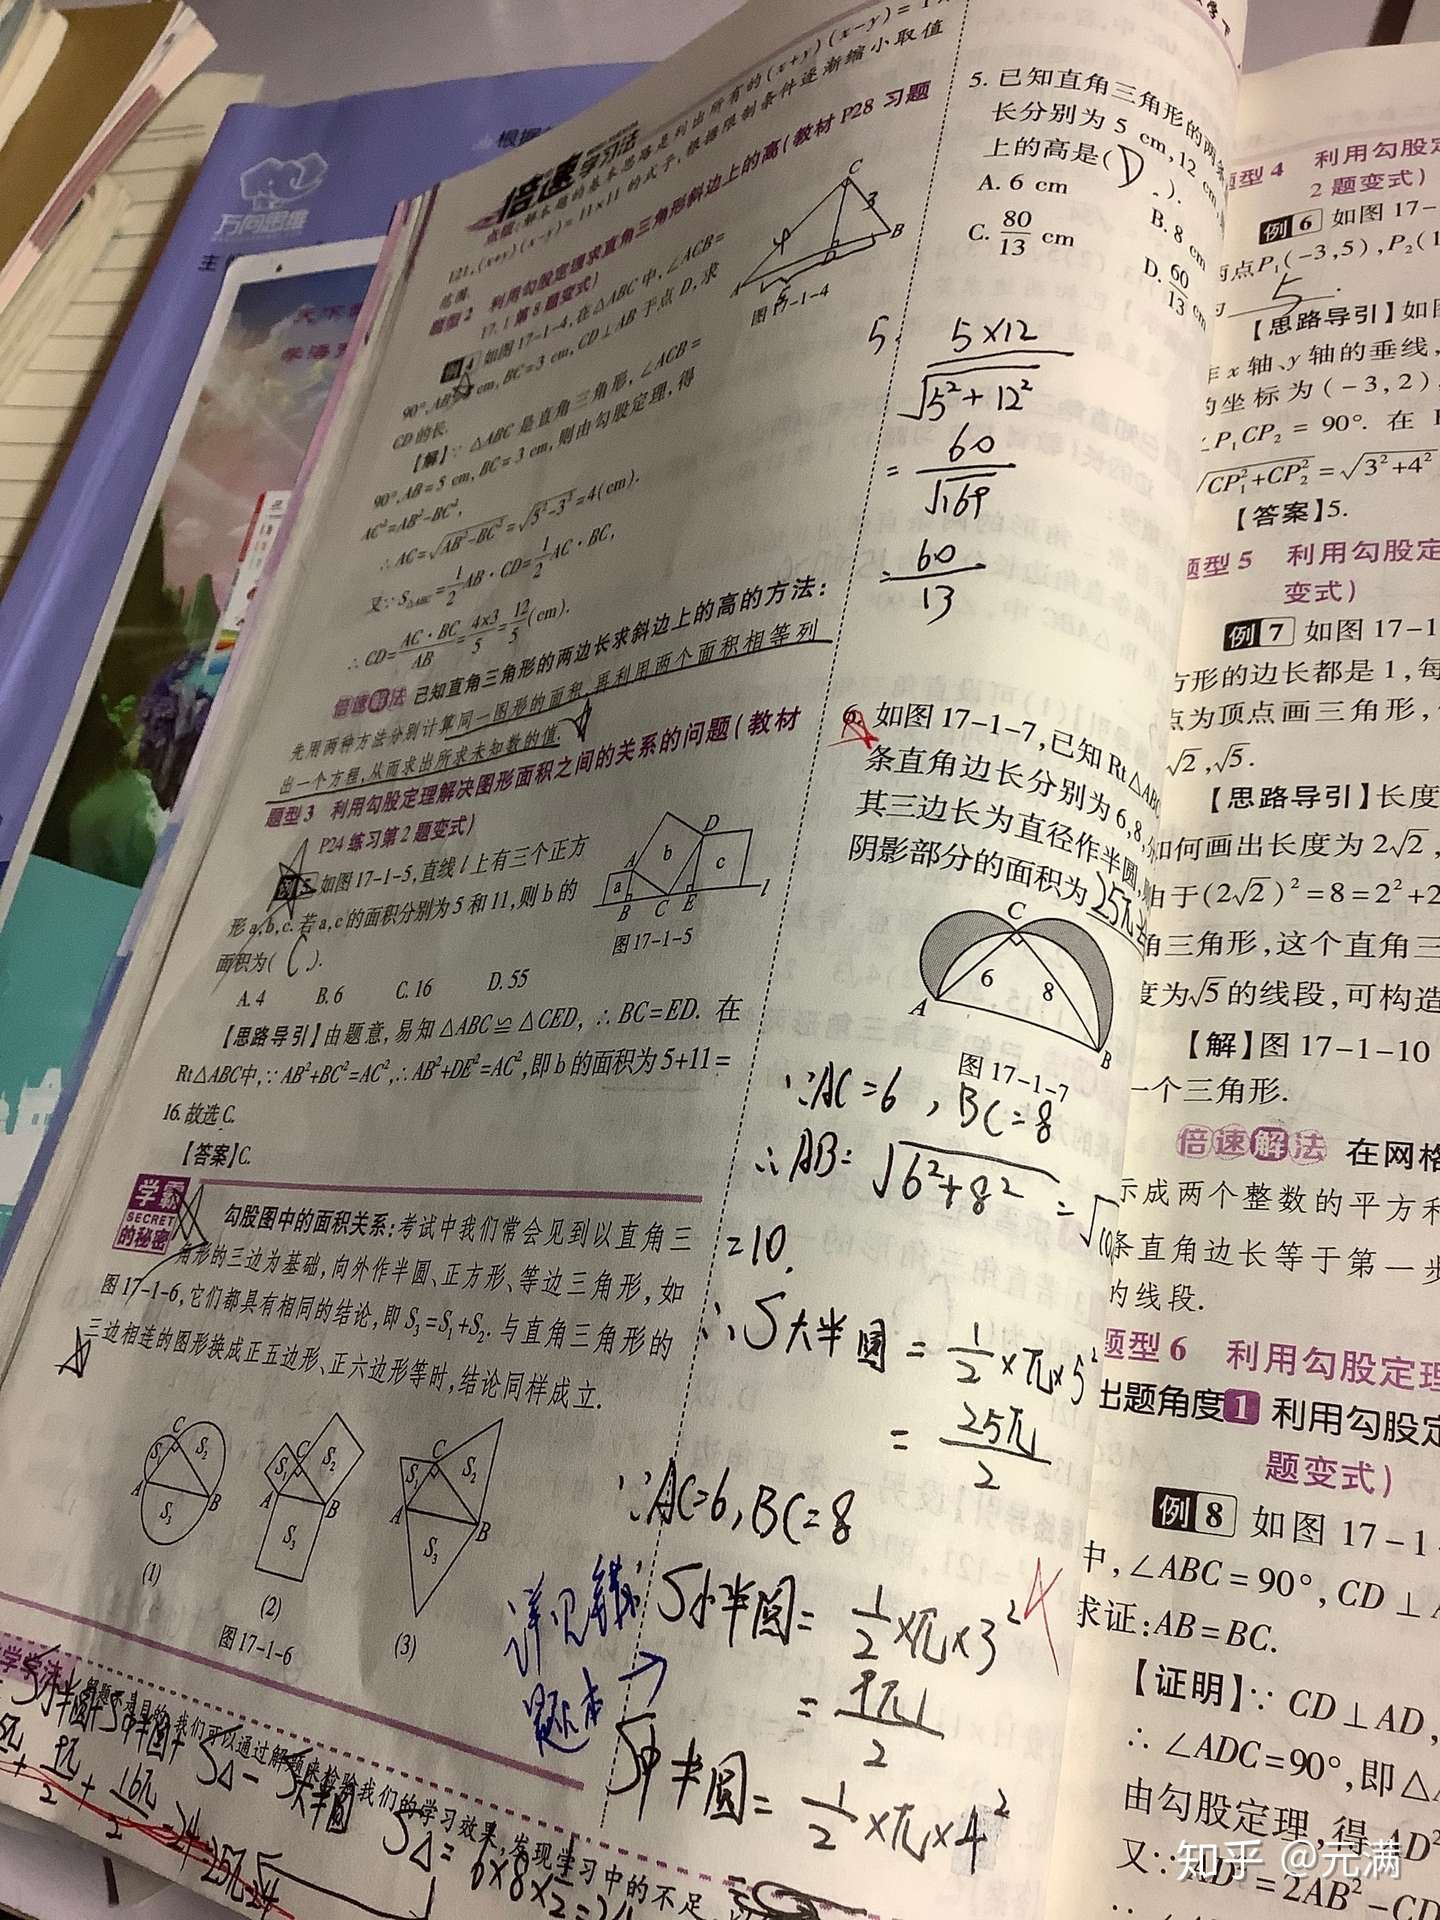 万向思维
倍速学习法
点拨:解本题的基本思路是列出所有的(x+y)(x-y)=
121,(x+y)(x-y)=11×11的式子,根据限制条件逐渐缩小取值
范围.
题型2 利用勾股定理求直角三角形斜边上的高(教材P28习题
17.1第8题变式)
例4 如图17-1-4,在△ABC中,∠ACB=
90°,AB=5 cm,BC=3 cm,CD⊥AB于点D,求
CD的长.
C
3
4
B
D
A
5
图17-1-4
【解】∵△ABC是直角三角形,∠ACB=
90°,AB=5 cm,BC=3 cm,则由勾股定理,得
AC²=AB²-BC²,
∴AC=√(AB²-BC²)=√(5²-3²)=4(cm).
又∵S△ABC=1/2 AB·CD=1/2 AC·BC,
∴CD=AC·BC/AB=4×3/5=12/5(cm).
倍速解法 已知直角三角形的两边长求斜边上的高的方法:
先用两种方法分别计算同一图形的面积,再利用两个面积相等列
出一个方程,从而求出所求未知数的值.
题型3 利用勾股定理解决图形面积之间的关系的问题(教材
P24练习第2题变式)
例5 如图17-1-5,直线l上有三个正方
形a,b,c.若a,c的面积分别为5和11,则b的
面积为( C ).
A b D
a c
B C E l
图17-1-5
A.4 B.6 C.16 D.55
【思路导引】由题意,易知△ABC≌△CED,∴BC=ED.在
Rt△ABC中,∵AB²+BC²=AC²,∴AB²+DE²=AC²,即b的面积为5+11=
16.故选C.
【答案】C.
学霸
SECRET
的秘密
勾股图中的面积关系:考试中我们常会见到以直角三
角形的三边为基础,向外作半圆、正方形、等边三角形,如
图17-1-6,它们都具有相同的结论,即S₃=S₁+S₂.与直角三角形的
三边相连的图形换成正五边形、正六边形等时,结论同样成立.
S₁ C S₂ A B S₃
(1)
S₁ C S₂ A B S₃
(2)
S₁ C S₂ A B S₃
(3)
图17-1-6
我们可以通过解题来检验我们的学习效果,发现学习中的不足
S小半圆+S中半圆+S△-S大半圆
9π/2+16π/2
S△=6×8×1/2=24
5.已知直角三角形的两条
长分别为5 cm,12 cm,
上的高是( D ).
A.6 cm
B.8 cm
C.80/13 cm
D.60/13 cm
5. 5×12/√(5²+12²)
=60/√169
=60/13
6.如图17-1-7,已知Rt△ABC
条直角边长分别为6,8,分
其三边长为直径作半圆,
阴影部分的面积为
C
6 8
A B
图17-1-7
∵AC=6,BC=8
∴AB=√(6²+8²)=
=10.
∴S大半圆=1/2×π×5²
=25π/2
∵AC=6,BC=8
S小半圆=1/2×π×3²
=9π/2
详见错
题本→
S中半圆=1/2×π×4²
题型4 利用勾股定
2题变式)
例6 如图17-
两点P₁(-3,5),P₂(1
5.
【思路导引】如图
作x轴、y轴的垂线,
的坐标为(-3,2),
∠P₁CP₂=90°.在
√(CP₁²+CP₂²)=√(3²+4²)
【答案】5.
题型5 利用勾股定
变式)
例7 如图17-1
方形的边长都是1,每
点为顶点画三角形,
√2,√5.
【思路导引】长度
如何画出长度为2√2,
由于(2√2)²=8=2²+2
角三角形,这个直角三
度为√5的线段,可构造
【解】图17-1-10
一个三角形.
倍速解法 在网格
示成两个整数的平方和
条直角边长等于第一步
的线段.
题型6 利用勾股定理
出题角度1 利用勾股定
题变式)
例8 如图17-1-
中,∠ABC=90°,CD⊥A
求证:AB=BC.
【证明】∵CD⊥AD,
∴∠ADC=90°,即△
由勾股定理,得AD²
又∵AD²=2AB²-CD
知乎 @元满